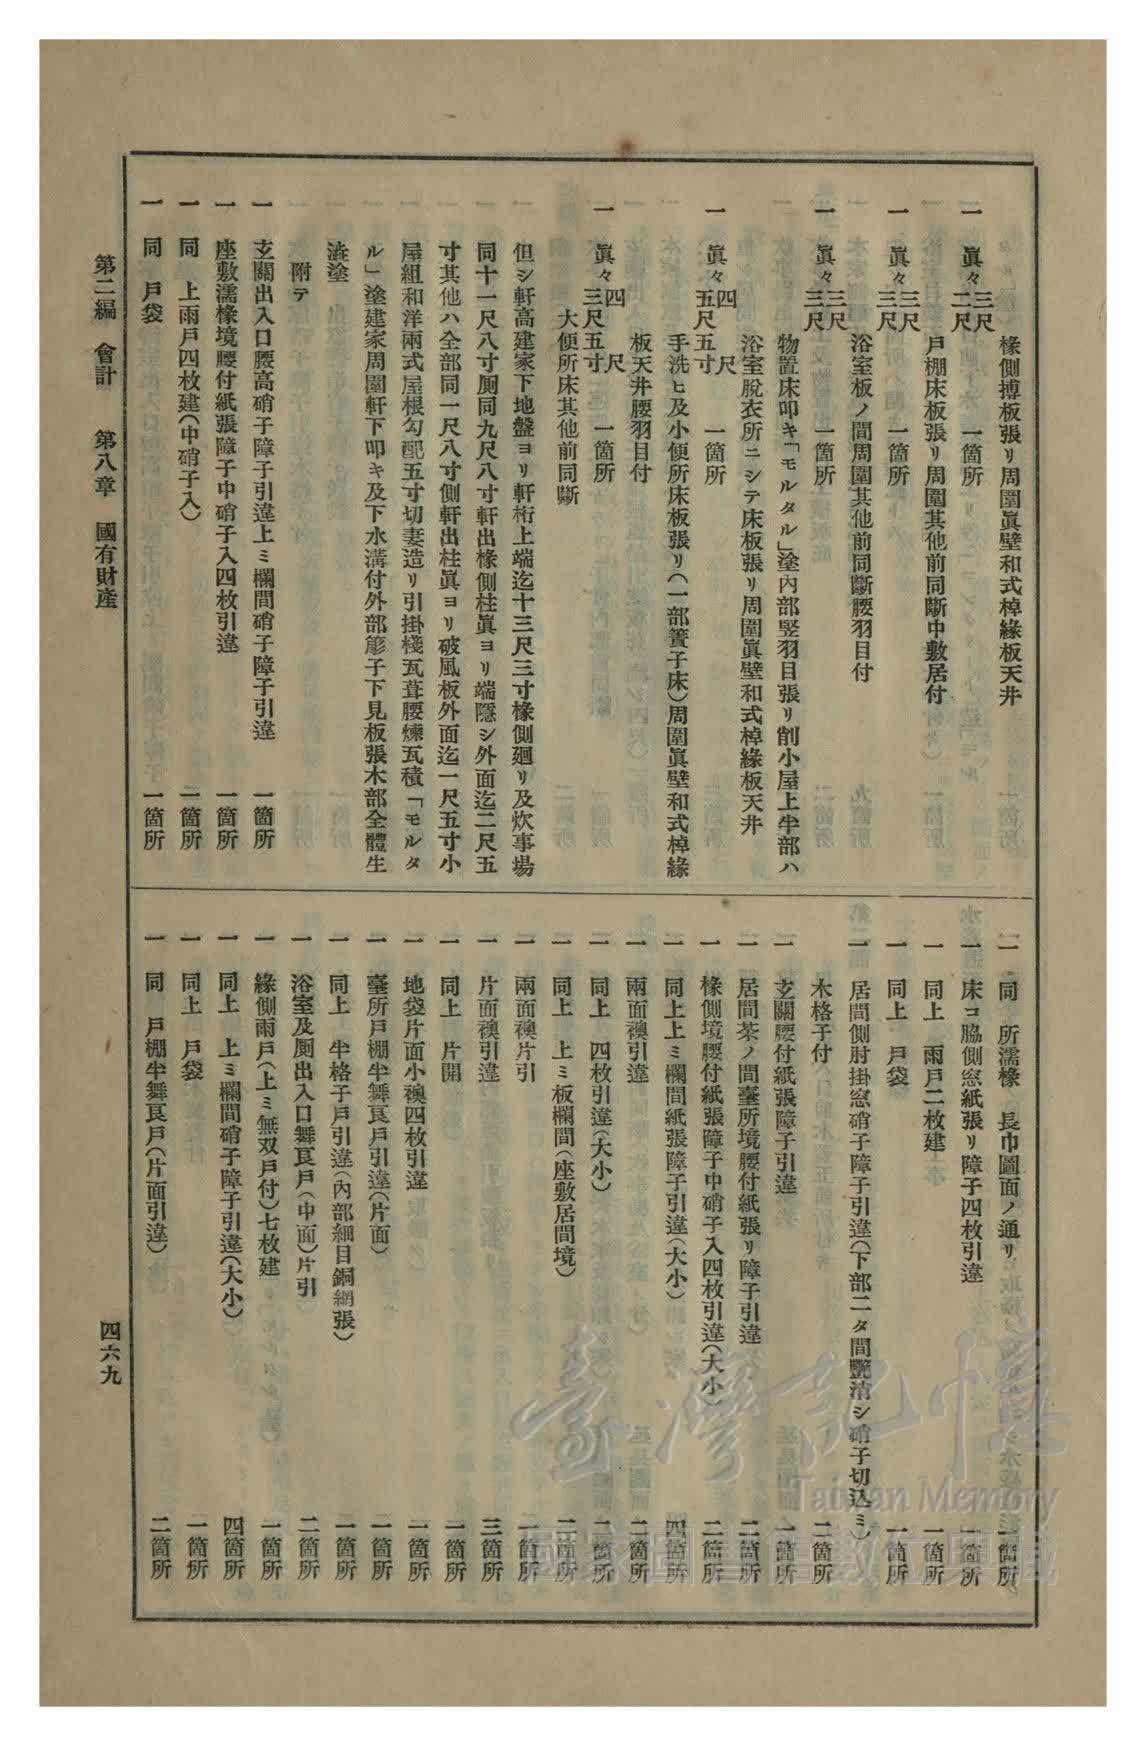 椽側搏板張リ周圍眞壁和式棹緣板天井
一 眞々三尺二尺 一箇所
戸棚床板張リ周圍其他前同斷中敷居付
一 眞々三尺三尺 一箇所
浴室板ノ間周圍其他前同斷腰羽目付
一 眞々三尺三尺 一箇所
物置床叩キ「モルタル」塗內部竪羽目張リ削小屋上半部ハ
浴室脫衣所ニシテ床板張リ周圍眞壁和式棹緣板天井
一 眞々四尺五尺五寸 一箇所
手洗ヒ及小便所床板張リ(一部簀子床)周圍眞壁和式棹緣
板天井腰羽目付
一 眞々四尺三尺五寸 一箇所
大便所床其他前同斷
但シ軒高建家下地盤ヨリ軒桁上端迄十三尺三寸椽側廻リ及炊事場
同十一尺八寸厠同九尺八寸軒出椽側柱眞ヨリ端隱シ外面迄二尺五
寸其他ハ全部同一尺八寸側軒出柱眞ヨリ破風板外面迄一尺五寸小
屋組和洋兩式屋根勾配五寸切妻造リ引掛棧瓦葺腰煉瓦積「モルタ
ル」塗建家周圍軒下叩キ及下水溝付外部簓子下見板張木部全體生
澁塗
附テ
一 玄關出入口腰高硝子障子引違上ミ欄間硝子障子引違 一箇所
一 座敷濡椽境腰付紙張障子中硝子入四枚引違 一箇所
一 同 上雨戸四枚建(中硝子入) 一箇所
一 同 戸袋 一箇所
一 同 所濡椽 長巾圖面ノ通リ 一箇所
一 床コ脇側窓紙張リ障子四枚引違 一箇所
一 同上 雨戸二枚建 一箇所
一 同上 戸袋 一箇所
一 居間側肘掛窓硝子障子引違(下部二タ間艷消シ硝子切込ミ)
木格子付 二箇所
一 玄關腰付紙張障子引違 一箇所
一 居間茶ノ間臺所境腰付紙張リ障子引違 二箇所
一 椽側境腰付紙張障子中硝子入四枚引違(大小) 二箇所
一 同上上ミ欄間紙張障子引違(大小) 四箇所
一 兩面襖引違 二箇所
一 同上 四枚引違(大小) 二箇所
一 同上 上ミ板欄間(座敷居間境) 一箇所
一 兩面襖片引 二箇所
一 片面襖引違 三箇所
一 同上 片開 一箇所
一 地袋片面小襖四枚引違 一箇所
一 臺所戸棚半舞良戸引違(片面) 一箇所
一 同上 半格子戸引違(內部細目銅網張) 一箇所
一 浴室及厠出入口舞良戸(中面)片引 二箇所
一 緣側雨戸(上ミ無双戸付)七枚建 一箇所
一 同上 上ミ欄間硝子障子引違(大小) 四箇所
一 同上 戸袋 一箇所
一 同 戸棚半舞良戸(片面引違) 二箇所
第二編 會計 第八章 國有財產
四六九
臺灣記憶
Taiwan Memory
國家圖書館數位典藏